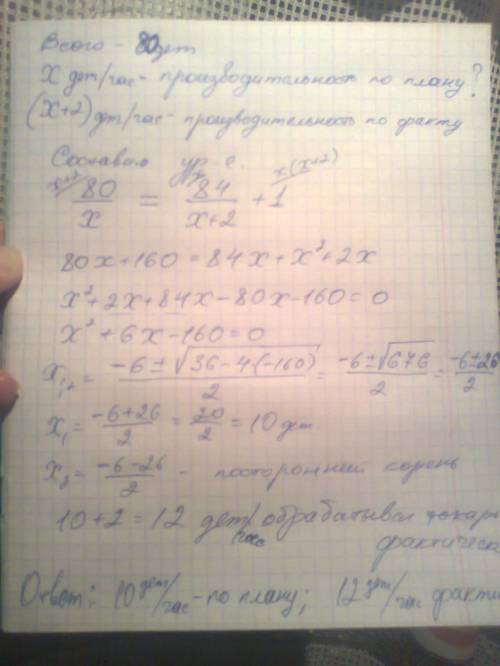 Всего - 80 дет
X дет/час - производительность по плану?
(x+2) дт/час - производительность по факту
Составим ур-е.
x+2/ 80/x = x/ 84/(x+2) + x(x+2)/ 1
80x+160 = 84x + x² + 2x
x² + 2x + 84x - 80x - 160 = 0
x² + 6x - 160 = 0
x₁,₂ = (-6 ± √(36 - 4(-160)))/2 = (-6 ± √676)/2 = (-6 ± 26)/2
x₁ = (-6 + 26)/2 = 20/2 = 10 дет.
x₂ = (-6 - 26)/2 - посторонний корень
10 + 2 = 12 дет/час обрабатывал токарь
фактическ
Ответ: 10 дет/час - по плану; 12 дет/час факти